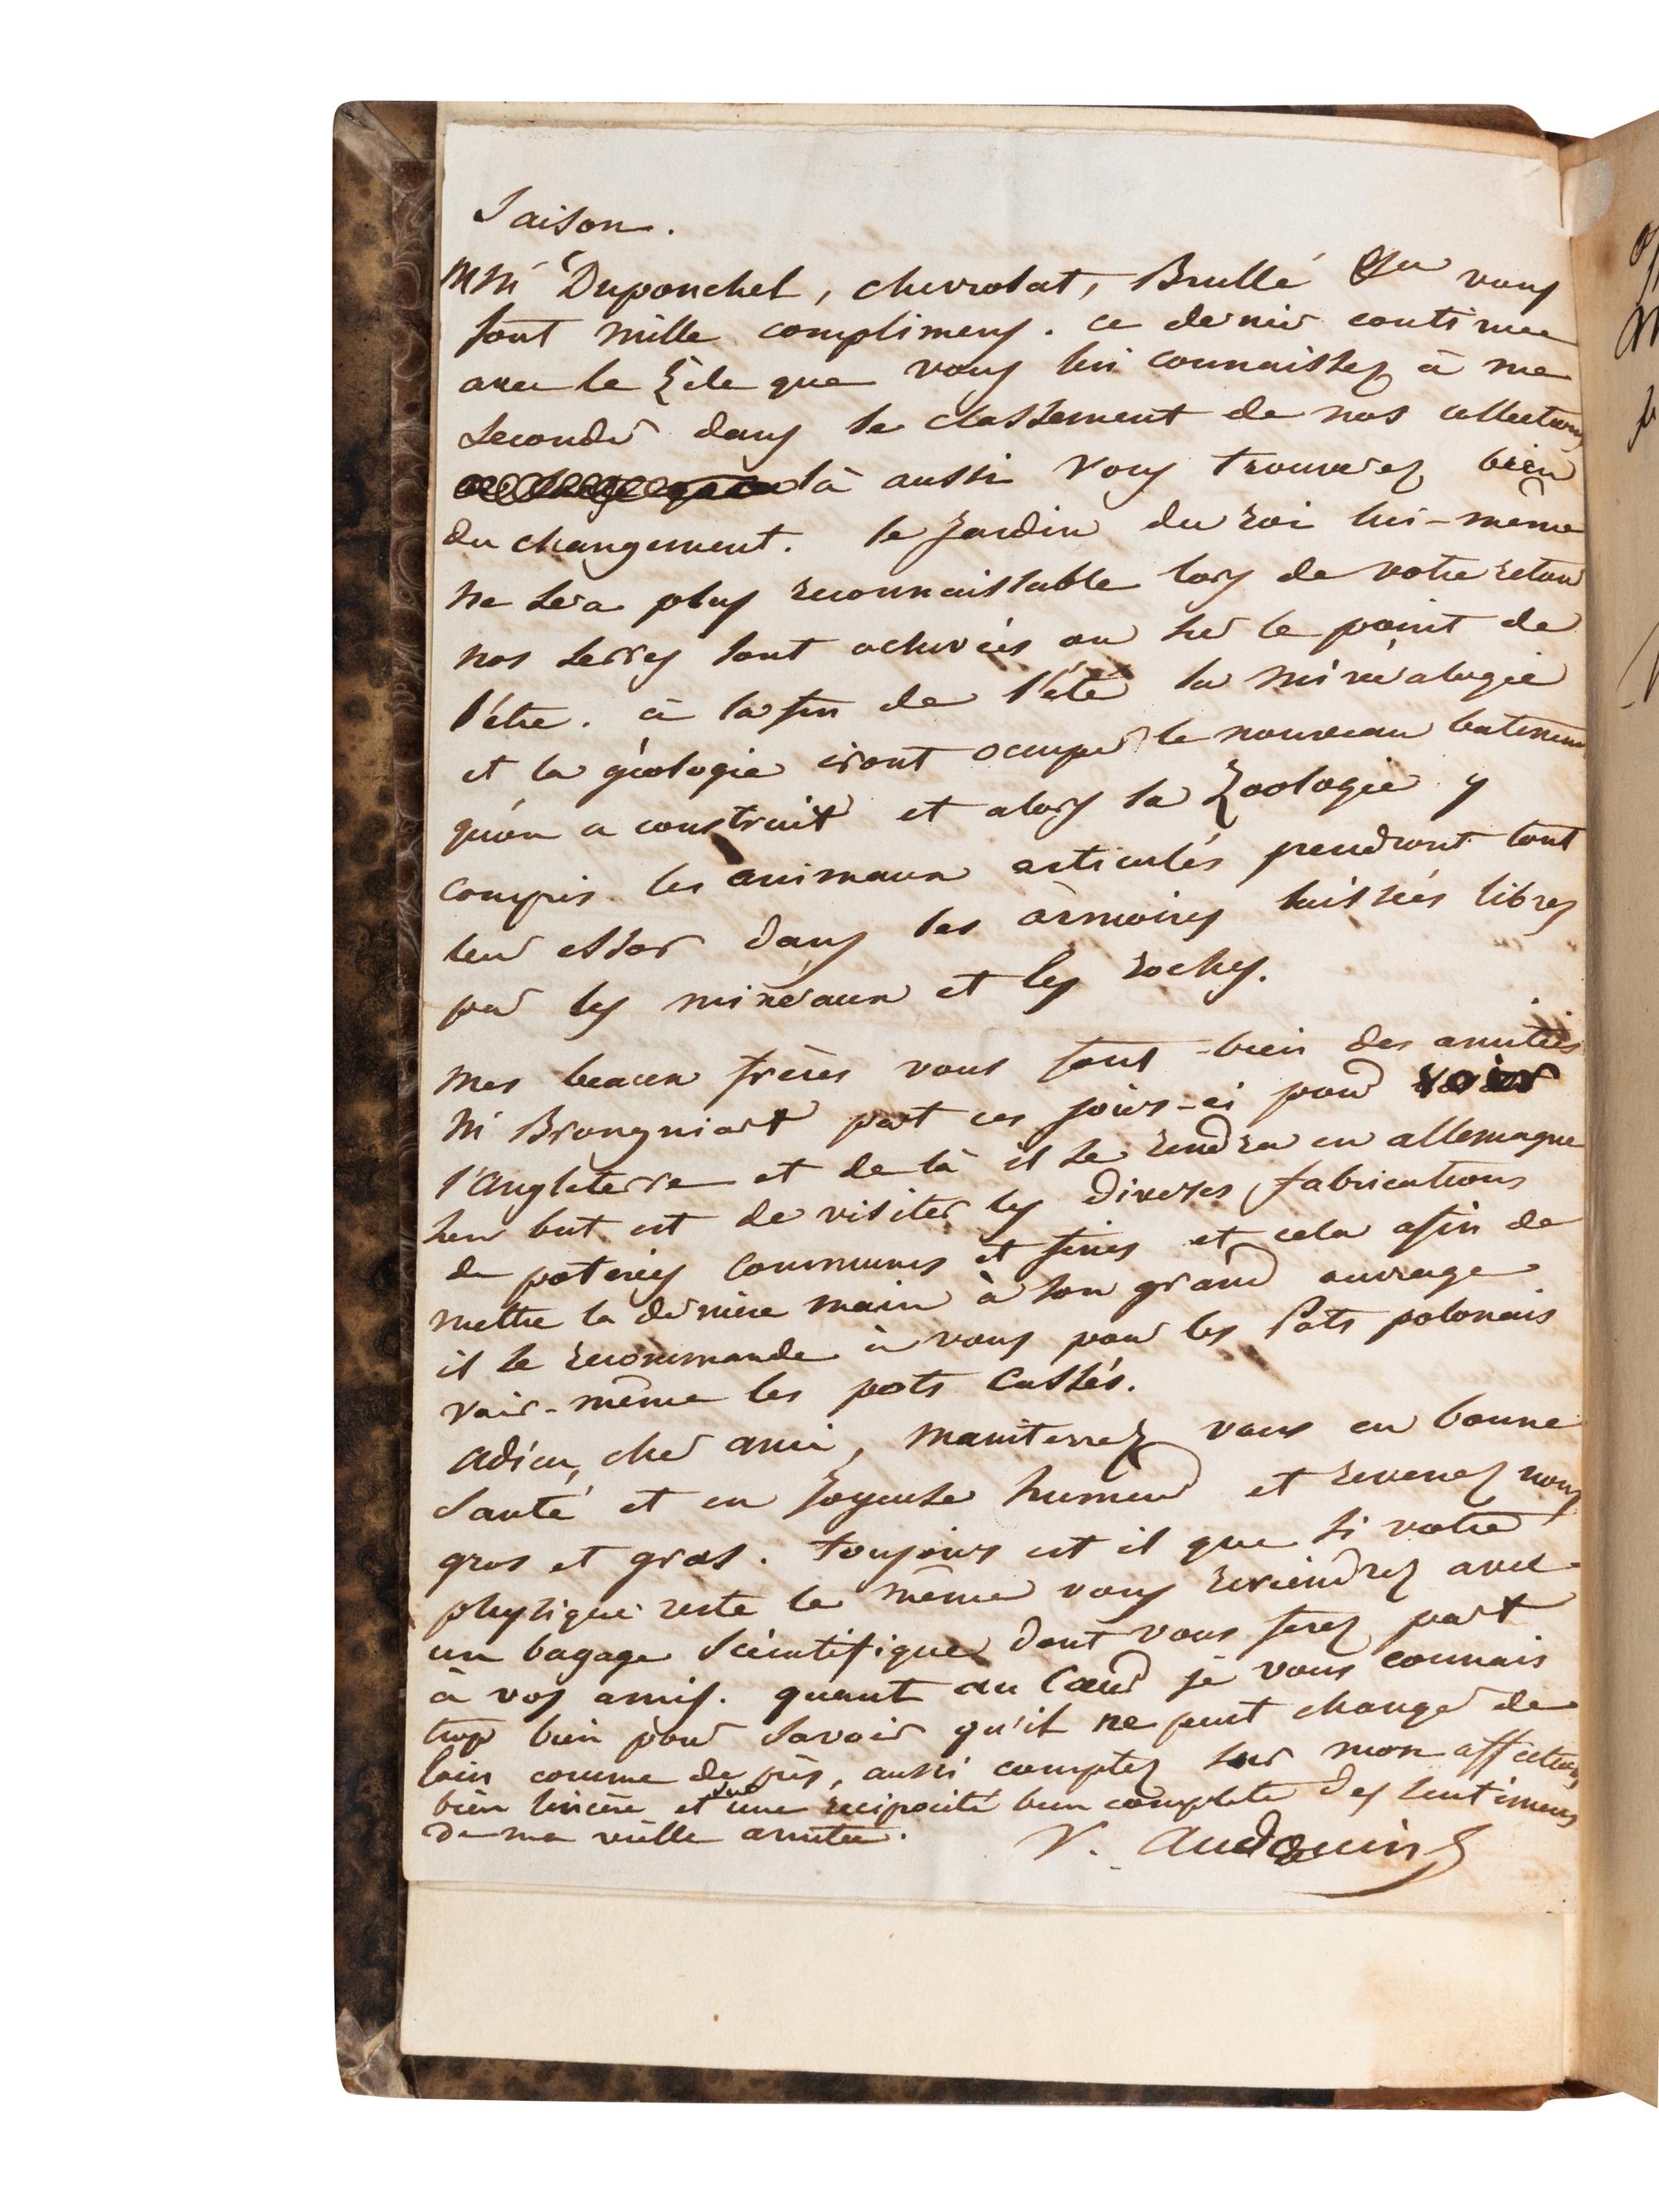 saison.
MM Duponchel, chevrolat, Brullé & vous
font mille complimens. ce dernier continue
avec le zèle que vous lui connaissez à me
seconder dans le classement de nos collections
là aussi vous trouverez bien
du changement. le jardin du roi lui-même
ne sera plus reconnaissable lors de votre retour
nos serres sont achevées ou sur le point de
l'etre. à la fin de l'été la minéralogie
et la géologie iront occuper le nouveau batiment
qu'on a construit et alors la zoologie y
compris les animaux articulés prendront tout
leur essor dans les armoires laissées libres
par les minéraux et les roches.
mes beaux frères vous font bien des amitiés
M Brongniart part ces jours-ci pour voir
l'angleterre et de là il se rendra en allemagne
son but est de visiter les diverses fabrications
de poteries communes et fines et cela afin de
mettre la dernière main à son grand ouvrage
il se recommande à vous pour les Pots polonais
voir-même les pots cassés.
adieu, cher ami, maintenez vous en bonne
santé et en joyeuse humeur et revenez nous
gros et gras. toujours est il que si votre
physique reste le même vous reviendrez avec
un bagage scientifique dont vous ferez part
à vos amis. quant au coeur je vous connais
trop bien pour savoir qu'il ne peut changer de
loin comme de près, aussi comptez sur mon affection
bien sincère et sur une réciprocité bien complete des sentimens
de ma vieille amitié.
V. Audouin